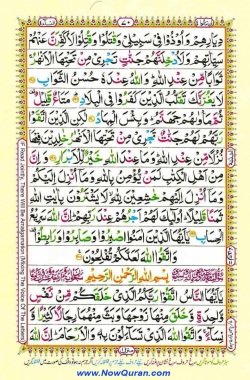 دِيَارِهِمْ وَأُوذُوا فِي سَبِيلِي وَقٰتَلُوا وَقُتِلُوا لَأُكَفِّرَنَّ عَنْهُمْ
سَيِّاٰتِهِمْ وَلَأُدْخِلَنَّهُمْ جَنّٰتٍ تَجْرِي مِنْ تَحْتِهَا الْأَنْهٰرُ
ثَوَابًا مِّنْ عِنْدِ اللهِ وَاللهُ عِنْدَهُ حُسْنُ الثَّوَابِ
لَا يَغُرَّنَّكَ تَقَلُّبُ الَّذِينَ كَفَرُوا فِي الْبِلَادِ مَتَاعٌ قَلِيلٌ
ثُمَّ مَأْوٰىهُمْ جَهَنَّمُ وَبِئْسَ الْمِهَادُ لٰكِنِ الَّذِينَ اتَّقَوْا
رَبَّهُمْ لَهُمْ جَنّٰتٌ تَجْرِي مِنْ تَحْتِهَا الْأَنْهٰرُ خٰلِدِينَ فِيهَا
نُزُلًا مِّنْ عِنْدِ اللهِ وَمَا عِنْدَ اللهِ خَيْرٌ لِّلْأَبْرَارِ وَإِنَّ
مِنْ أَهْلِ الْكِتٰبِ لَمَنْ يُّؤْمِنُ بِاللهِ وَمَا أُنْزِلَ إِلَيْكُمْ
وَمَا أُنْزِلَ إِلَيْهِمْ خٰشِعِينَ لِلهِ لَا يَشْتَرُونَ بِاٰيٰتِ اللهِ
ثَمَنًا قَلِيلًا أُولٰئِكَ لَهُمْ أَجْرُهُمْ عِنْدَ رَبِّهِمْ إِنَّ اللهَ سَرِيعُ
الْحِسَابِ يٰأَيُّهَا الَّذِينَ اٰمَنُوا اصْبِرُوا وَصَابِرُوا وَرَابِطُوا
وَاتَّقُوا اللهَ لَعَلَّكُمْ تُفْلِحُونَ
بِسْمِ اللهِ الرَّحْمٰنِ الرَّحِيمِ
يٰأَيُّهَا النَّاسُ اتَّقُوا رَبَّكُمُ الَّذِي خَلَقَكُمْ مِّنْ نَّفْسٍ
وَّاحِدَةٍ وَّخَلَقَ مِنْهَا زَوْجَهَا وَبَثَّ مِنْهُمَا رِجَالًا كَثِيرًا وَّ
نِسَاءً وَاتَّقُوا اللهَ الَّذِي تَسَاءَلُونَ بِهِ وَالْأَرْحَامَ إِنَّ اللهَ
www.NowQuran.com